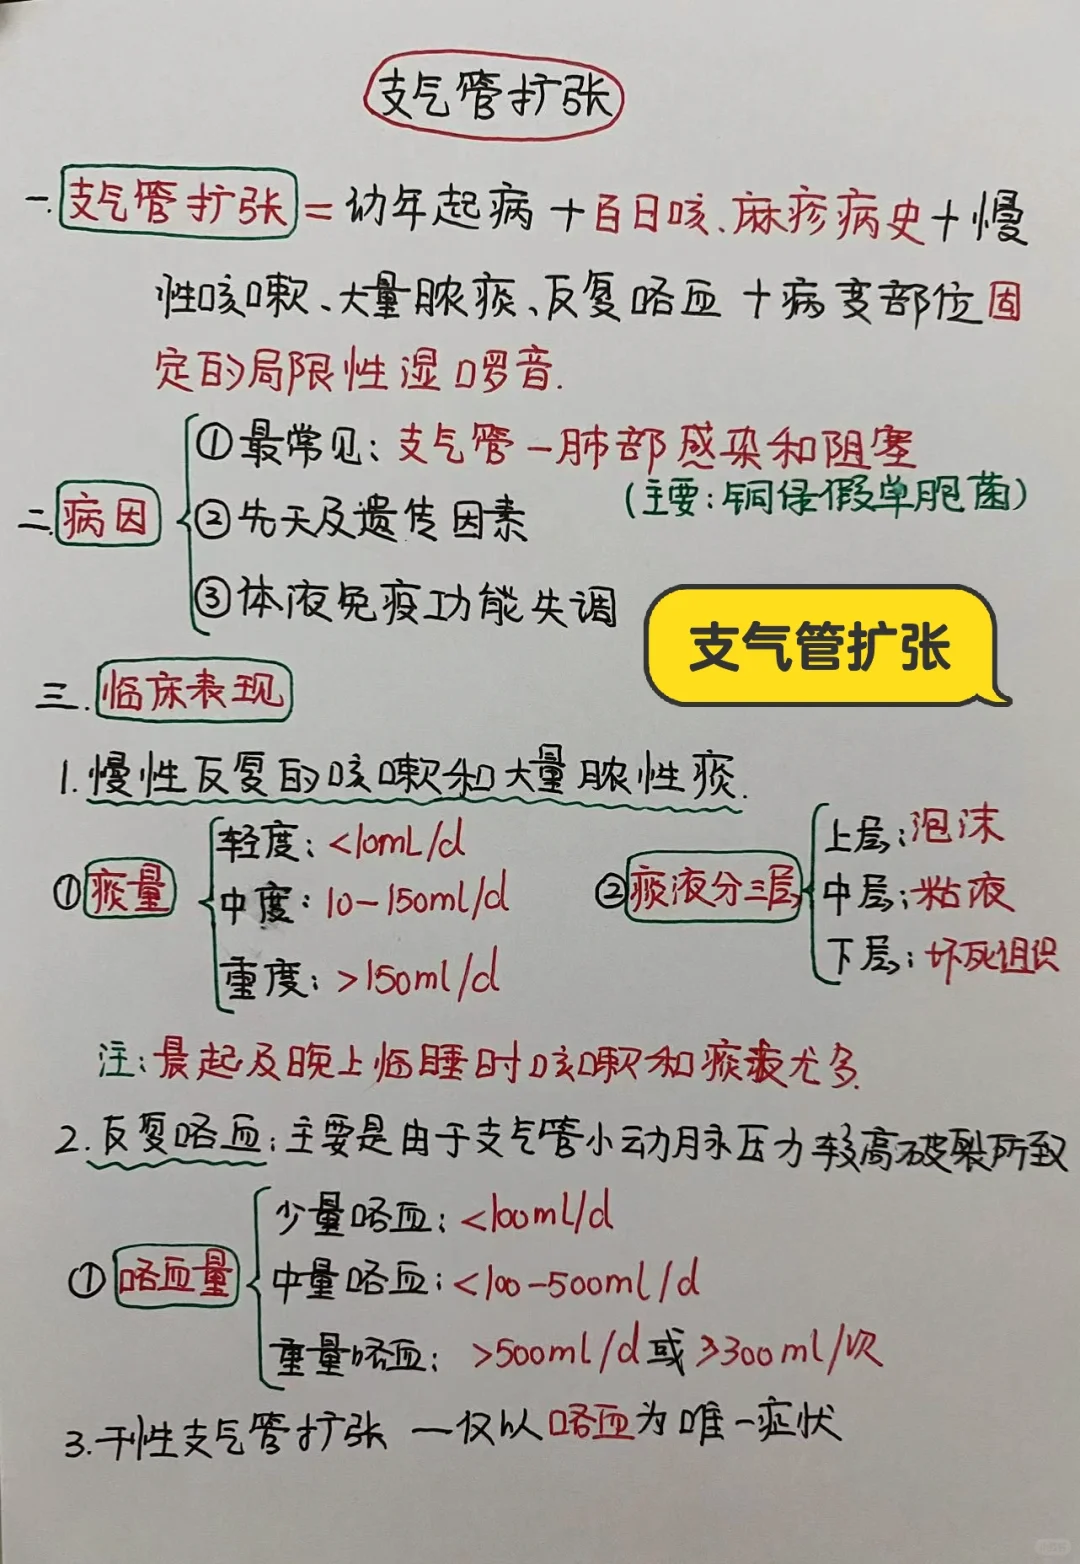 支气管扩张
一.支气管扩张=幼年起病+百日咳.麻疹病史+慢
性咳嗽、大量脓痰、反复咯血+病变部位固
定的局限性湿啰音.
二.病因
①最常见:支气管-肺部感染和阻塞
(主要:铜绿假单胞菌)
②先天及遗传因素
③体液免疫功能失调
支气管扩张
三.临床表现
1.慢性反复的咳嗽和大量脓性痰.
①痰量
轻度:<10mL/d
中度:10-150ml/d
重度:>150ml/d
②痰液分三层
上层:泡沫
中层:粘液
下层:坏死组织
注:晨起及晚上临睡时咳嗽和痰液尤多.
2.反复咯血:主要是由于支气管小动脉压力较高破裂所致
①咯血量
少量咯血:<100ml/d
中量咯血:<100-500ml/d
重量咯血:>500ml/d或≥300ml/次
3.干性支气管扩张一仅以咯血为唯一症状